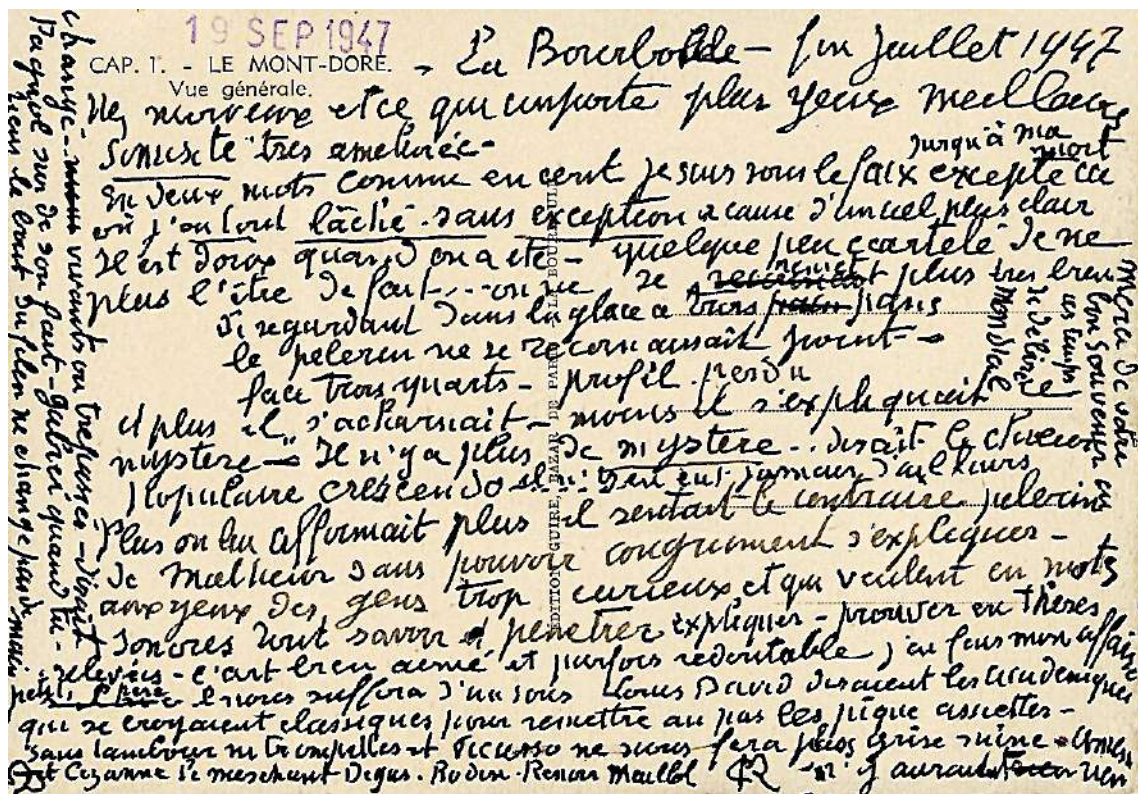 19 SEP 1947
CAP. 1. - LE MONT-DORE.
Vue générale.
La Bourboule - fin Juillet 1947
et ce qui importe plus yeux meilleurs
sinusite très améliorée -
jusqu'à ma mort
En deux mots comme en cent je suis sous le faix excepté ce
où j'ai tout lâché sans exception à cause d'un ciel plus clair
Il est doux quand on a été - quelque peu écartelé de ne
plus l'être de fait - - - on ne se plus très bien
Se regardant dans la glace à trois pans
le pèlerin ne se reconnaissait point -
face trois quarts - profil perdu
et plus il s'acharnait - moins il s'expliquait
mystère - Il n'y a plus de mystère - disait le
populaire crescendo et n'y en eut jamais d'ailleurs
Plus on lui affirmait plus il sentait le contraire pelerin
de malheur sans pouvoir congrument s'expliquer -
aux yeux des gens trop curieux et qui veulent en mots
sonores tout savoir et pénétrer expliquer - prouver en thèses
relevées - l'art bien aimé et parfois redoutable j'en fais mon affaire
suffira d'un sous Louis David disaient les académiques
qui se croyaient classiques pour remettre au pas les pique assiettes -
sans tambour ni trompettes et Picasso ne nous fera plus grise mine
et Cézanne le meschant Degas. Rodin. Renoir Maillol GR n'y aurait rien
Merci de votre
bon souvenir en
ces temps
de délire
Mondial
change - vivants ou trépassés - disait
Pagnol sur de son fait - Gabriel quand tu
tiens le bout du filon ne change pas de main
EDITION GUIRE, BAZAR DE PARIS - LA BOURBOULE